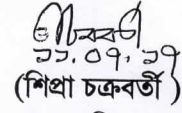 ১১.০৭.১৭
(শিপ্রা চক্রবর্তী)